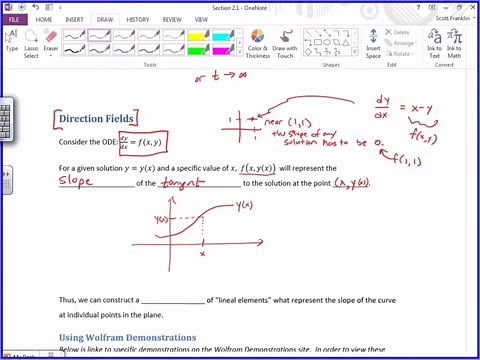 Section 2.1 - OneNote
Scott Franklin
FILE HOME INSERT DRAW HISTORY REVIEW VIEW
Type Lasso Select Eraser
Panning Hand
Tools
Color & Thickness
Draw with Touch
Shapes
Insert Space
Delete
Arrange
Rotate
Edit
Ink to Text
Ink to Math
Convert
or t → ∞
Direction Fields
1
1
near (1,1)
the slope of any
solution has to be 0.
dy/dx = x-y
f(x,y)
f(1,1)
Consider the ODE: dy/dx = f(x, y)
For a given solution y = y(x) and a specific value of x, f(x, y(x)) will represent the
slope of the tangent to the solution at the point (x, y(x)).
y(x)
y(x)
x
Thus, we can construct a ______________ of "lineal elements" what represent the slope of the curve
at individual points in the plane.
Using Wolfram Demonstrations
Below is linke to specific demonstrations on the Wolfram Demonstrations site. In order to view these